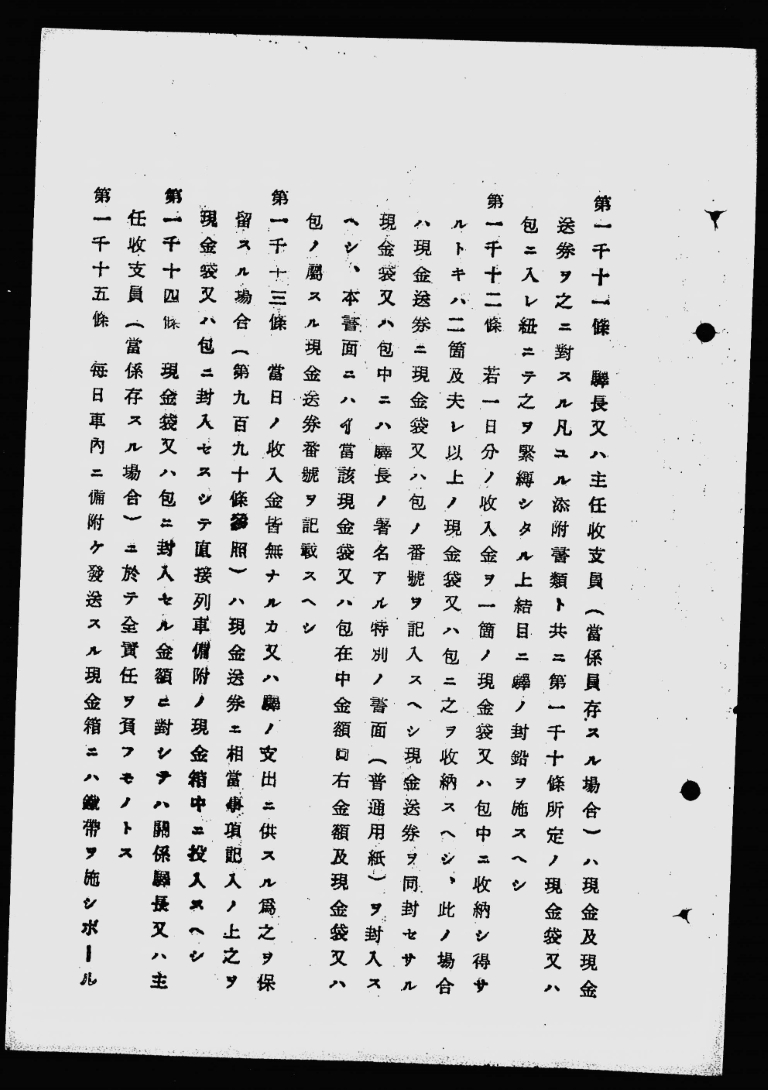 第一千十一條　驛長又ハ主任收支員（當係員存スル場合）ハ現金及現金
送券ヲ之ニ對スル凡ユル添附書類ト共ニ第一千十條所定ノ現金袋又ハ
包ニ入レ紐ニテ之ヲ緊縛シタル上結目ニ驛ノ封鉛ヲ施スヘシ
第一千十二條　若一日分ノ收入金ヲ一箇ノ現金袋又ハ包中ニ收納シ得サ
ルトキハ二箇及夫レ以上ノ現金袋又ハ包ニ之ヲ收納スヘシ、此ノ場合
ハ現金送券ニ現金袋又ハ包ノ番號ヲ記入スヘシ現金送券ヲ同封セサル
現金袋又ハ包中ニハ驛長ノ署名アル特別ノ書面（普通用紙）ヲ封入ス
ヘシ、本書面ニハイ當該現金袋又ハ包在中金額ロ右金額及現金袋又ハ
包ノ屬スル現金送券番號ヲ記載スヘシ
第一千十三條　當日ノ收入金皆無ナルカ又ハ驛ノ支出ニ供スル爲之ヲ保
留スル場合（第九百九十條參照）ハ現金送券ニ相當事項記入ノ上之ヲ
現金袋又ハ包ニ封入セスシテ直接列車備附ノ現金箱中ニ投入スヘシ
第一千十四條　現金袋又ハ包ニ封入セル金額ニ對シテハ關係驛長又ハ主
任收支員（當係存スル場合）ニ於テ全責任ヲ負フモノトス
第一千十五條　每日車內ニ備附ケ發送スル現金箱ニハ鐵帶ヲ施シボール